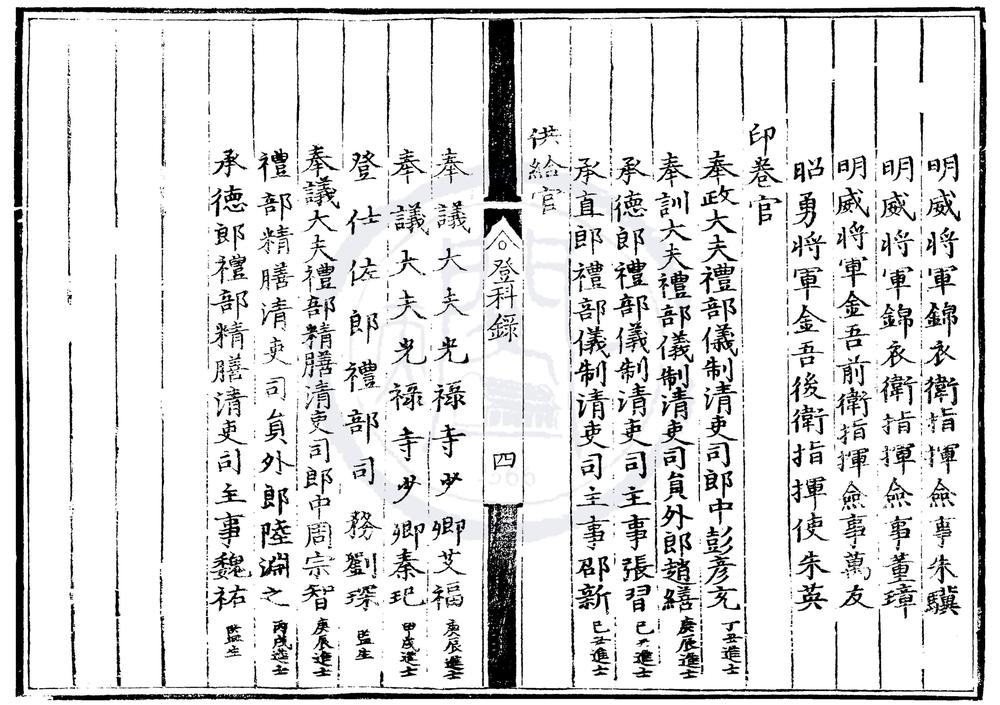 明威將軍錦衣衛指揮僉事朱驥
明威將軍錦衣衛指揮僉事董璋
明威將軍金吾前衛指揮僉事萬友
昭勇將軍金吾後衛指揮使朱英
印卷官
奉政大夫禮部儀制清吏司郎中彭彥充丁丑進士
奉訓大夫禮部儀制清吏司員外郎趙繕庚辰進士
承德郎禮部儀制清吏司主事張習己丑進士
承直郎禮部儀制清吏司主事邵新己丑進士
供給官
登科錄 四
奉議大夫光祿寺少卿艾福庚辰進士
奉議大夫光祿寺少卿秦玘甲戌進士
登仕佐郎禮部司務劉琛監生
奉議大夫禮部精膳清吏司郎中周宗智庚辰進士
禮部精膳清吏司員外郎陸淵之丙戌進士
承德郎禮部精膳清吏司主事魏祐監生